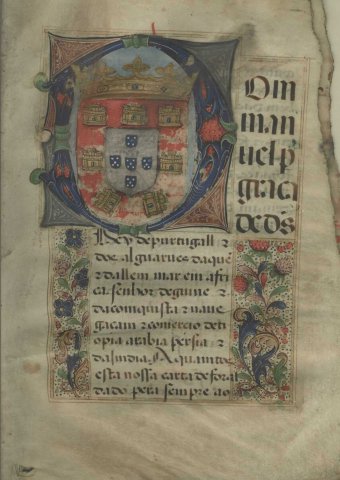 Om
man
uel p
graca
de ds
Rey de purtugall ⁊
dos alguarues daquē
⁊ dallem mar em afri
ca. senhor de guine ⁊
da comquista ⁊ naue
gacam ⁊ comercio de eti
opia arabia persia ⁊
da Jndia. A quamtos
esta nossa carta de foral
dado pera sempre ao